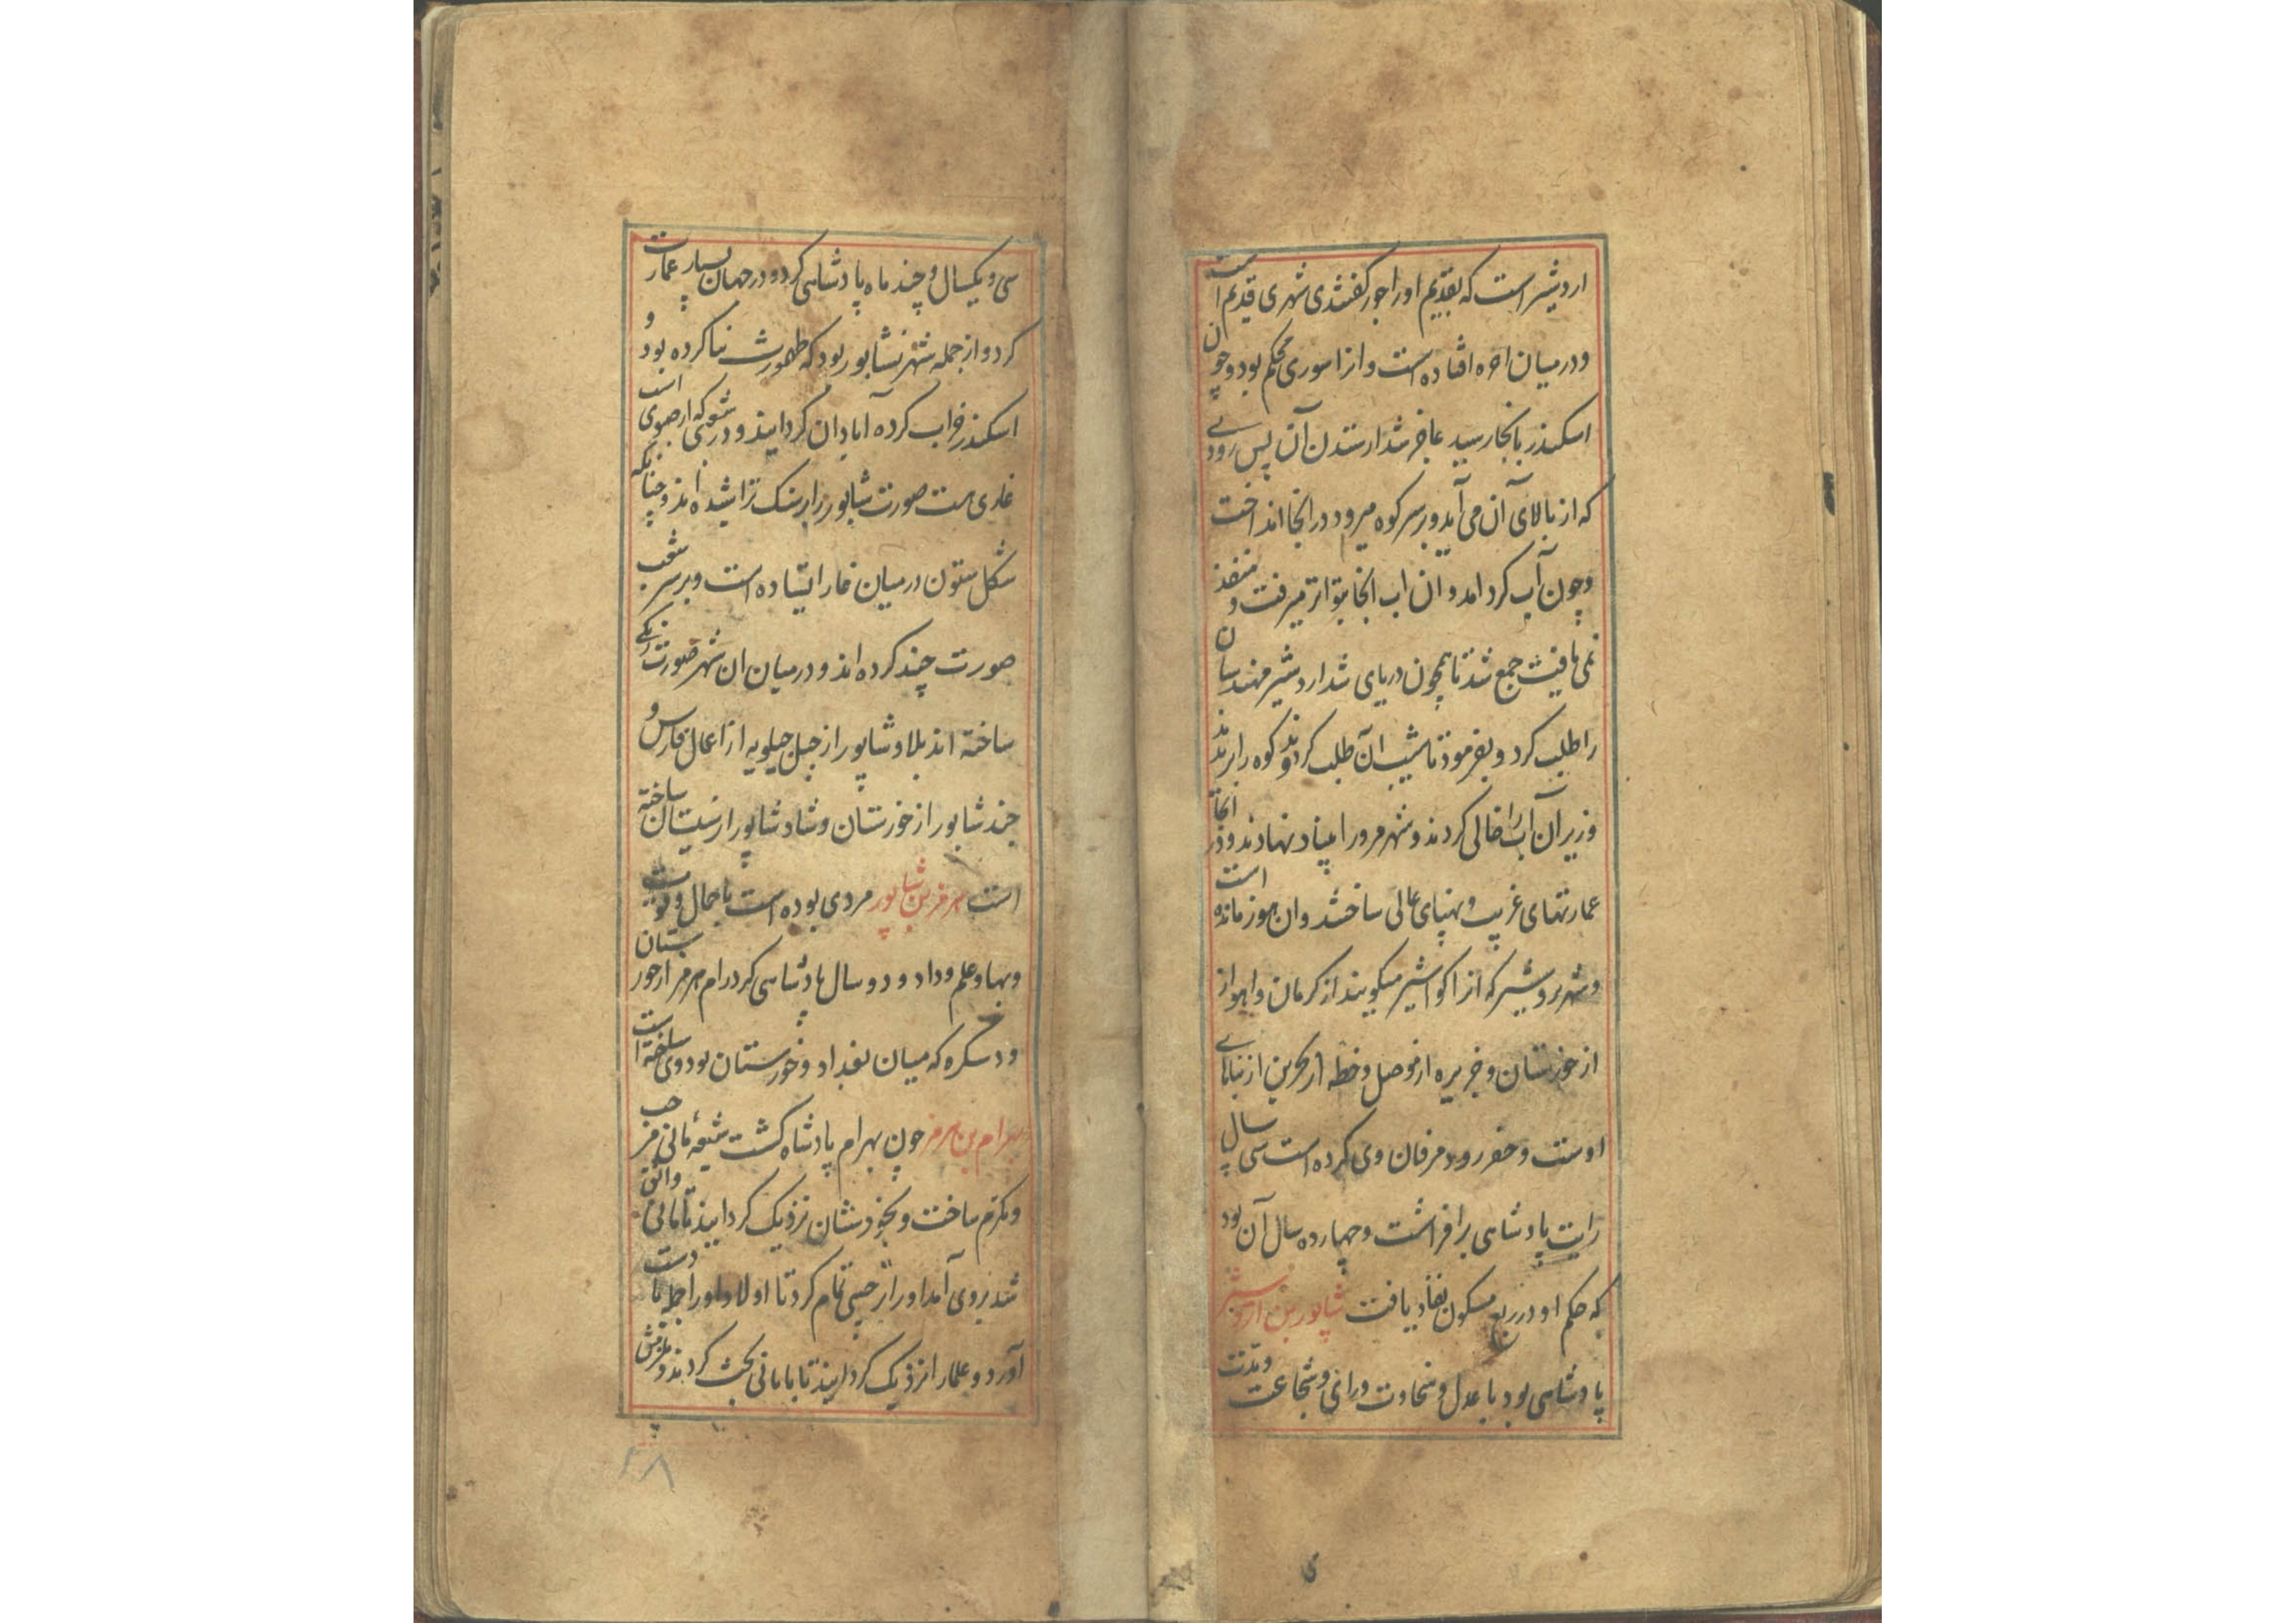 اردشیر است که بقدیم او را جور گفتندی شهری قدیم است
و درمیان افتاده است و انرا سوری محکم بود و چون
اسکندر بانجا رسید عاجز شد از ستدن آن پس رودی
که از بالای آن می آید و بر سر کوه میرود در انجا انداخت
و چون آب کرد امد و ان اب انجا بتواتر میرفت و منفذ
نمی یافت جمع شد تا همچون دریای شد اردشیر مهندسان
را طلب کرد و بفرمود تا نشیب آن طلب کردند و کوه را بریدند
و زیر آن آب را خالی کردند و شهر را بنیاد نهادند و در انجا
عمارتهای غریب و بنیای عالی ساختند و ان هنوز مانده است
و شهر بردشیر که انرا کواشیر میگویند از کرمان و اهواز
از خوزستان و جزیره از موصل و خطه از بحرین از بناهای
اوست و حفر رود مرقان وی کرده است سی سال
رایت پادشاهی برافراشت و چهارده سال آن بود
که حکم او در ربع مسکون نفاذ یافت شاپور بن اردشیر
پادشاهی بود با عدل و سخاوت و رای و شجاعت و مدت
سی و یکسال و چند ماه پادشاهی کرد و در جهان بسیار عمارت
کرد و از جمله شهر نشابور بود که طهمورث بنا کرده بود و
اسکندر خراب کرده آبادان کردانید و در
غاری است صورت شابور را بر سنک تراشیده اند و چنانکه
شکل ستون درمیان غار ایستاده است و بر سر شعب
صورت چند کرده اند و درمیان ان شهر صورت
ساخته اند بلاد شاپور از جبل جیلویه از اعمال فارس و
جند شابور از خوزستان و شاد شاپور از سیستان ساخته
است هرمز بن شاپور مردی بوده است با جمال و قوت
و بها و علم و داد و دو سال پادشاهی کرد رام هرمز از خوزستان
و دسکره که میان بغداد و خوزستان بود وی ساخته است
بهرام بن هرمز چون بهرام پادشاه گشت شیعه مانی مرحب
و مکرم ساخت و بخودشان نزدیک کردانید تا مانی واثق
شد بروی آمد او را ترحیبی تمام کرد تا اولاد او را جمله با دست
آورد و علما را نزدیک کردانید تا با مانی بحث کردند و
۴۸